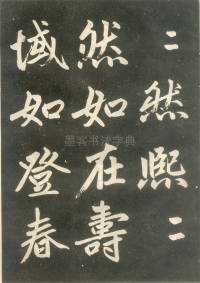 〻然熙〻
然如在壽
域如登春
墨客书法字典